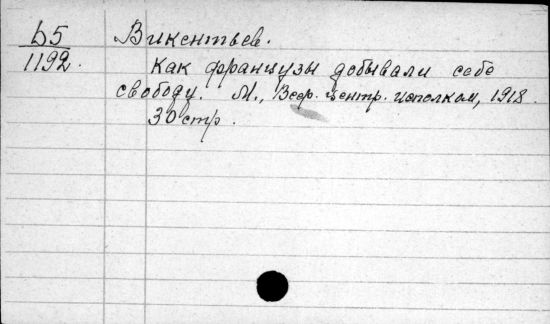 Б5
1192.
Викентьев.
Как французы добывали себе
свободу. М., Всер. центр. исполком, 1918.
30 стр.